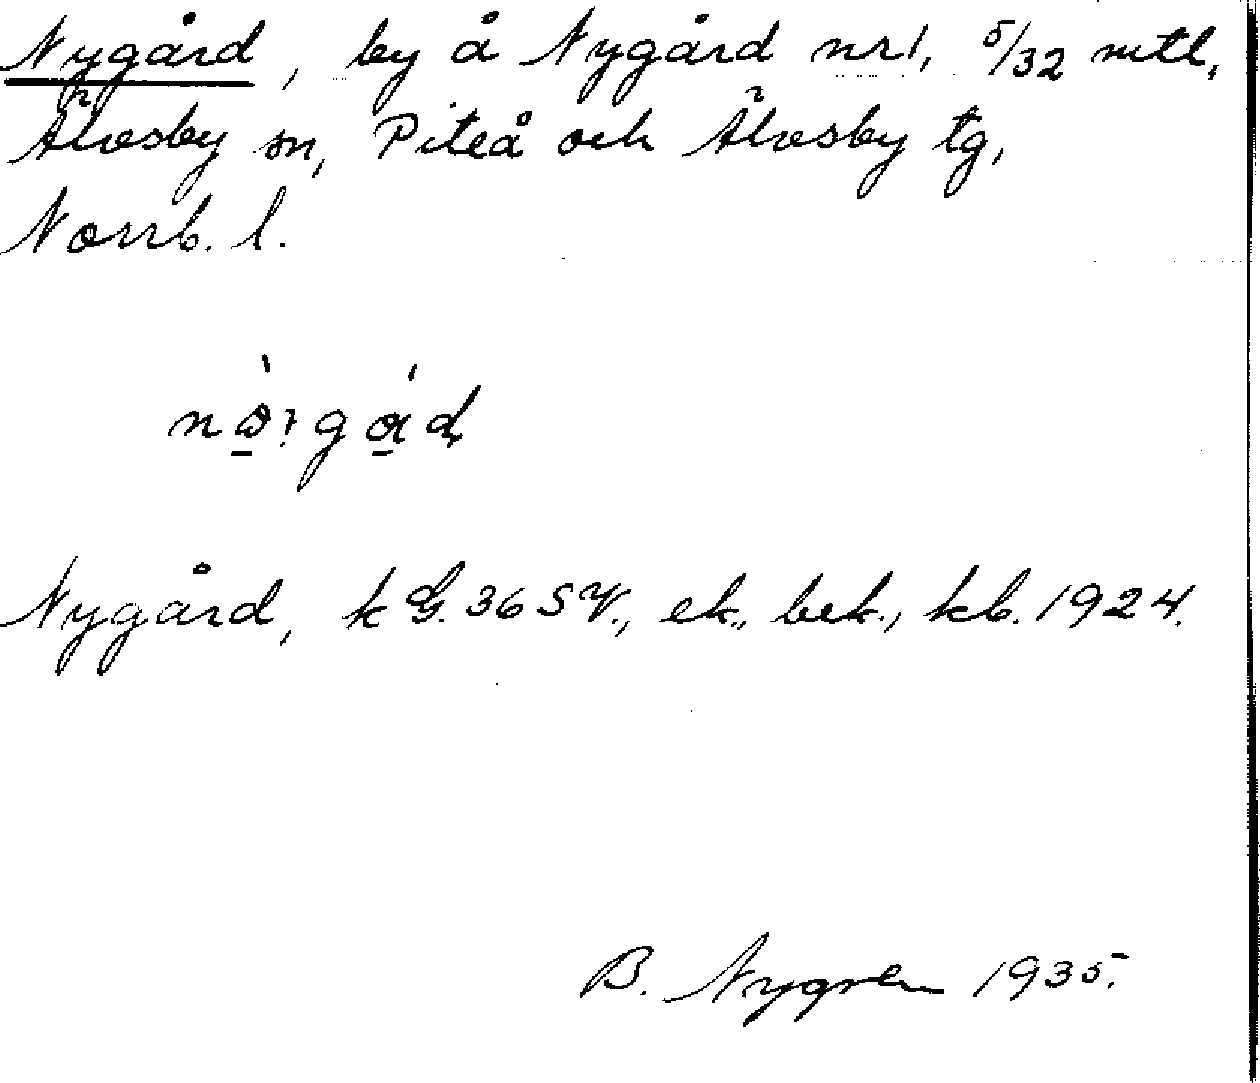 Nygård, by å Nygård nr 1, 5/32 mtl,
Älvsby sn, Piteå och Älvsby tg,
Norrb. l.
Nygård, k G. 36 SV., ek., bek., kb. 1924.
B. Nygren 1935.